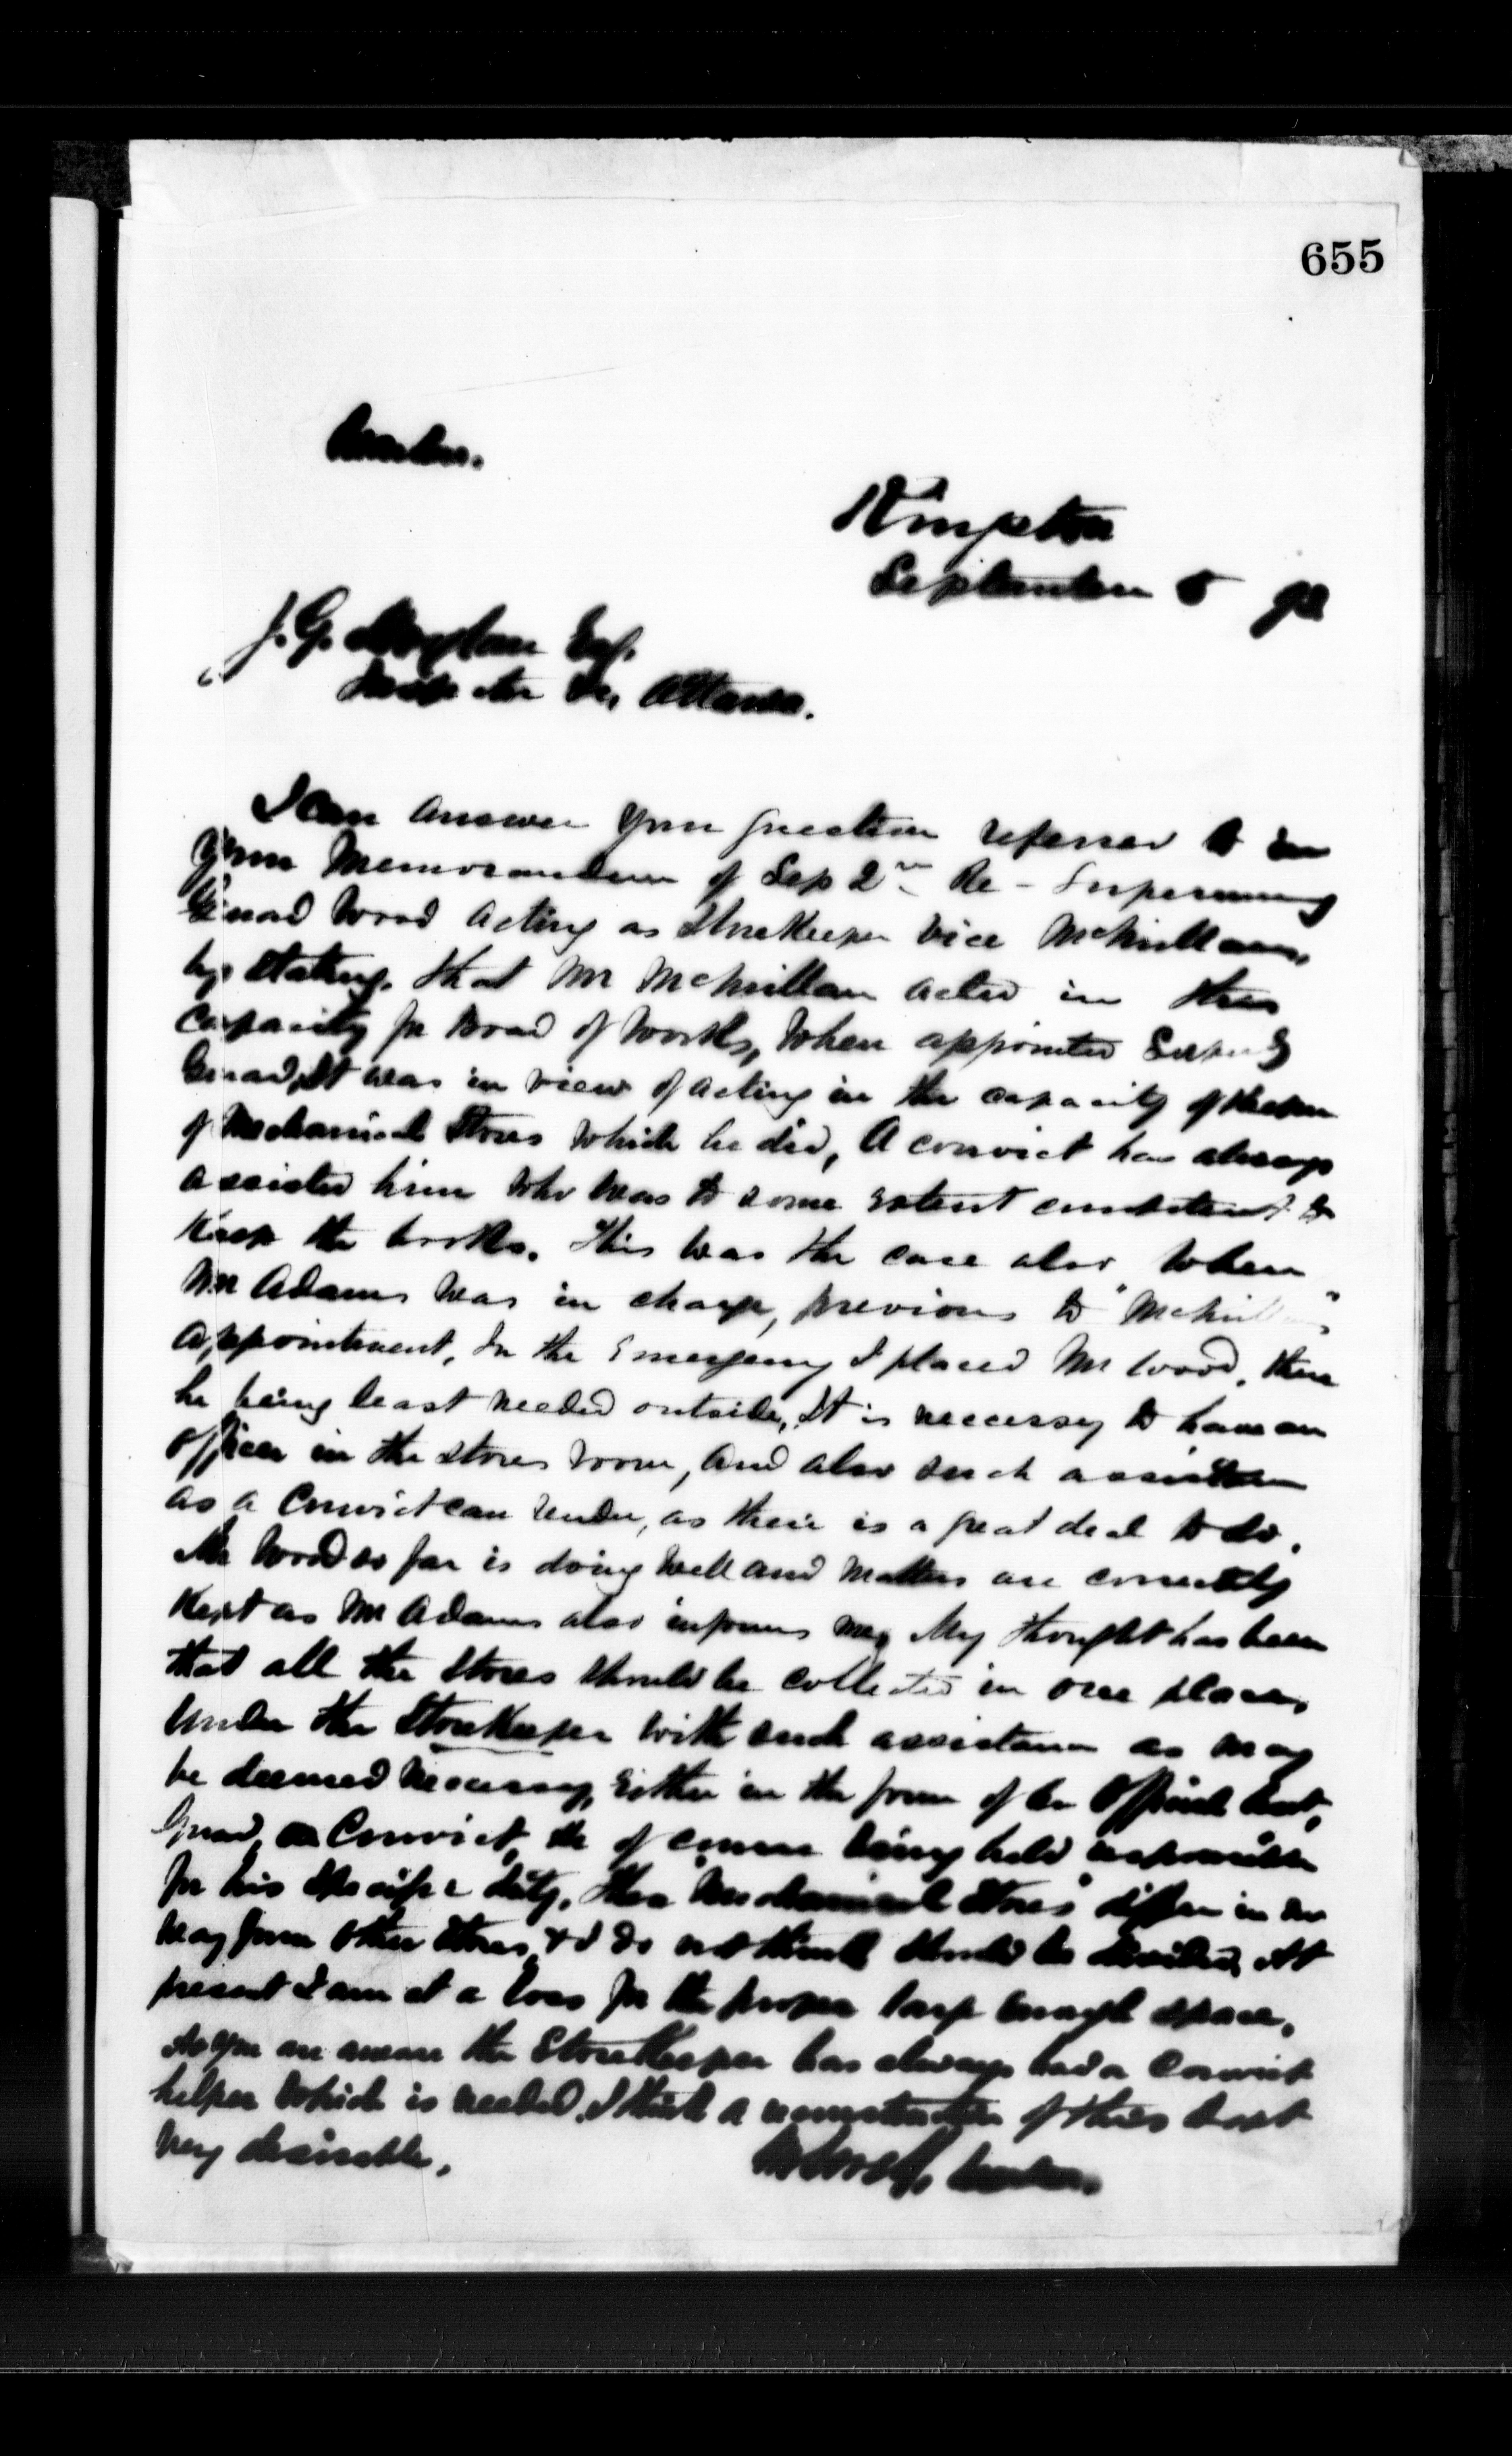 655
Kingston
September 5 92
J. G. Moylan Esq.
Inspector &c, Ottawa.
I can answer your question referred to in
your Memorandum of Sep 2nd Re - Supernumy
Guard Wood acting as Storekeeper vice McMillan,
by stating, that Mr McMillan acted in this
capacity for Board of Works, When appointed Supery
Guard, It was in view of acting in the capacity of Keeper
of Mechanical Stores which he did, A convict has always
assisted him who was to some extent competent to
Keep the books. This was the case also when
Mr Adams was in charge, previous to
appointment, In the Emergency I placed Mr Wood, there
he being least needed outside, It is necessary to have an
officer in the stores room, and also such assistance
as a Convict can render, as their is a great deal to do.
Mr Wood so far is doing well and matters are correctly
Kept as Mr Adams also informs me, My thought has been
that all the Stores should be collected in one place,
under the StoreKeeper with such assistance as may
be deemed necessary, Either in the form of an Official
Guard, or Convict, he of course being held responsible
for his specific duty, The "Mechanical Stores" differ in no
way from other Stores, & I do not think should be divided, At
present I am at a loss for the proper large enough space,
As you are aware the StoreKeeper has always had a Convict
helper which is needed, I think a of this
very desirable.